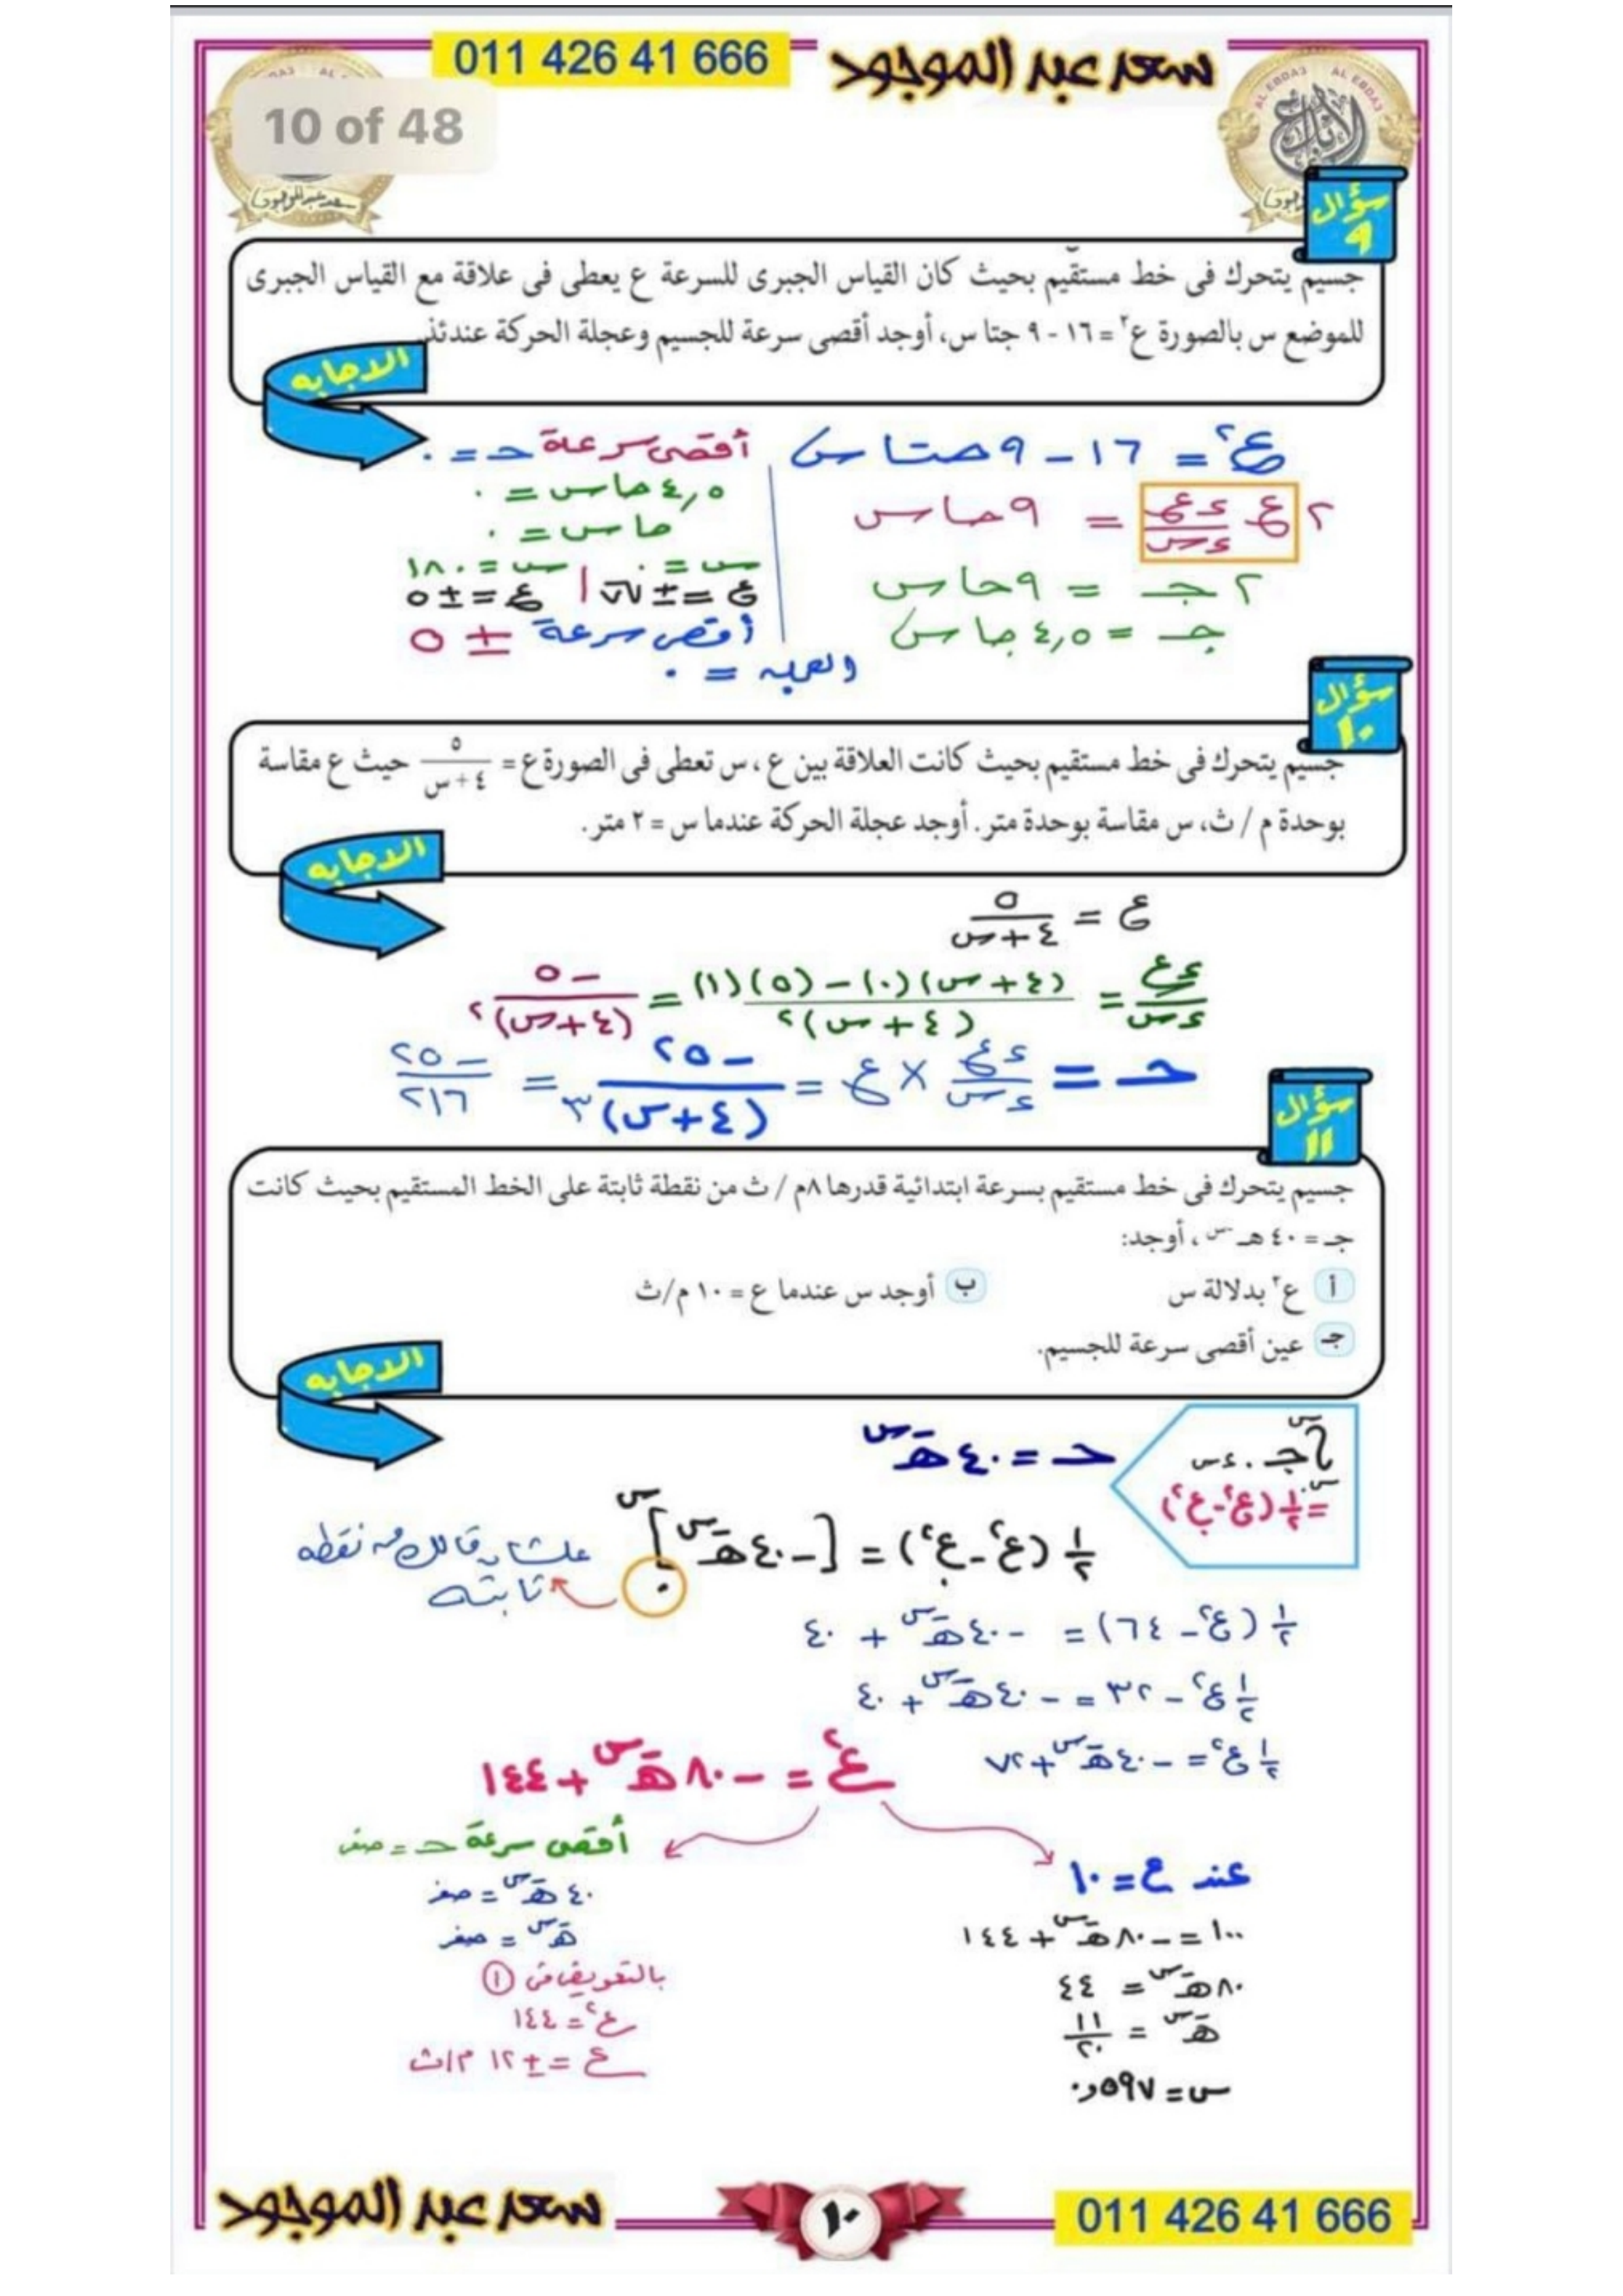 سعد عبد الموجود
011 426 41 666
10 of 48
AL EBDA3 AL EBDA3
سؤال ٩
جسيم يتحرك فى خط مستقيم بحيث كان القياس الجبرى للسرعة ع يعطى فى علاقة مع القياس الجبرى
للموضع س بالصورة ع² = ١٦ - ٩ جتا س، أوجد أقصى سرعة للجسيم وعجلة الحركة عندئذ.
الاجابه
ع² = ١٦ - ٩ حتا س
٢ ع ءع/ءس = ٩ حا س
٢ جـ = ٩ حا س
جـ = ٤,٥ جا س
أقصى سرعة حـ = ٠
٤,٥ حا س = ٠
حا س = ٠
س = ٠ س = ١٨٠
ع = ± √٧ | ع = ± ٥
أقصى سرعة ± ٥
والعجله = ٠
سؤال ١٠
جسيم يتحرك فى خط مستقيم بحيث كانت العلاقة بين ع ، س تعطى فى الصورة ع = ٥/(٤+س) حيث ع مقاسة
بوحدة م / ث، س مقاسة بوحدة متر. أوجد عجلة الحركة عندما س = ٢ متر.
الاجابه
ع = ٥/(٤+س)
ءع/ءس = ((٤+س)(٠) - (٥)(١))/(٤+س)² = -٥/(٤+س)²
حـ = ءع/ءس × ع = -٢٥/(٤+س)³ = -٢٥/٢١٦
سؤال ١١
جسيم يتحرك فى خط مستقيم بسرعة ابتدائية قدرها ٨م / ث من نقطة ثابتة على الخط المستقيم بحيث كانت
جـ = ٤٠ هـ⁻ˢ ، أوجد:
أ ع² بدلالة س
ب أوجد س عندما ع = ١٠ م/ث
جـ عين أقصى سرعة للجسيم.
الاجابه
∫ جـ . ءس
= ½ (ع² - ع.²)
حـ = ٤٠ هـ⁻س
½ (ع² - ع.²) = [-٤٠ هـ⁻س]
علشان قالك من نقطه
ثابته
½ (ع² - ٦٤) = -٤٠ هـ⁻س + ٤٠
½ ع² - ٣٢ = -٤٠ هـ⁻س + ٤٠
½ ع² = -٤٠ هـ⁻س + ٧٢
ع² = -٨٠ هـ⁻س + ١٤٤
عند ع = ١٠
١٠٠ = -٨٠ هـ⁻س + ١٤٤
٨٠ هـ⁻س = ٤٤
هـ⁻س = ١١/٢٠
س = ٠,٥٩٧
أقصى سرعة حـ = صفر
٤٠ هـ⁻س = صفر
هـ⁻س = صفر
بالتعويض فى ١
ع² = ١٤٤
ع = ± ١٢ م/ث
سعد عبد الموجود
١٠
011 426 41 666